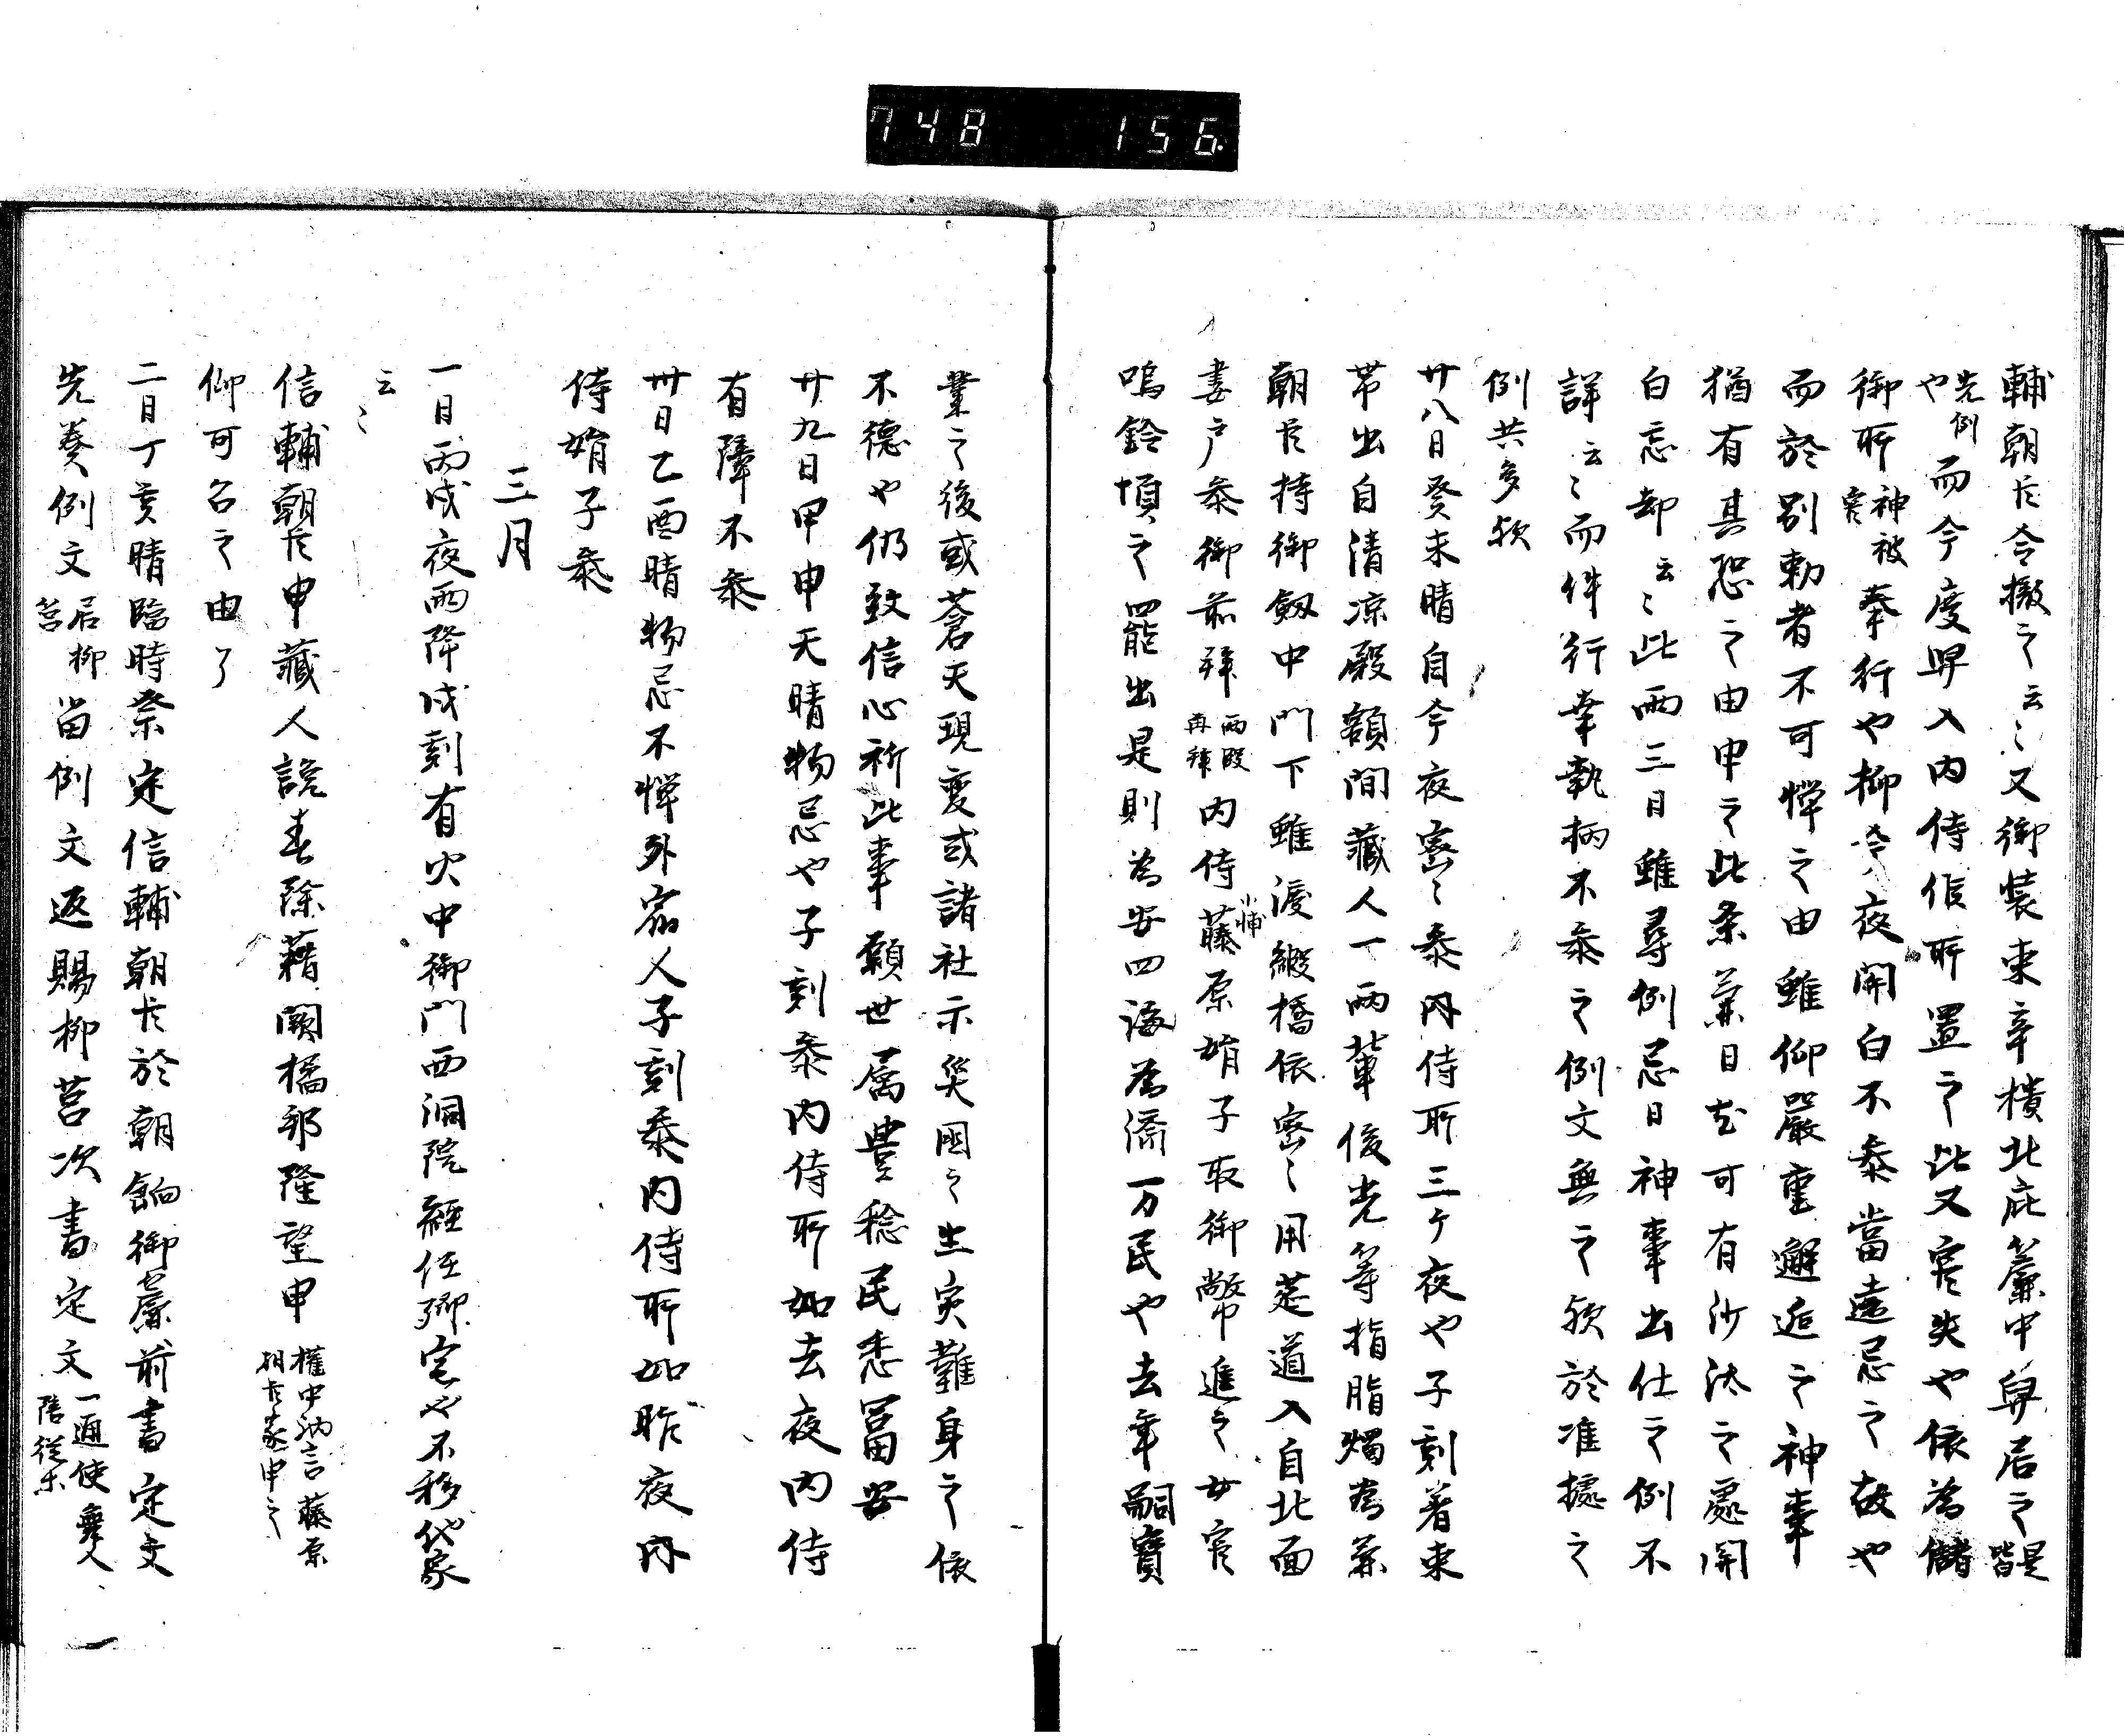 748 156
輔朝臣令撤之云々又御装束辛樻北庇簾中舁居之皆是
先例也而今度舁入内侍候所置之此又官失也依為儲
御所神被官奉行也抑今夜関白不参當遠忌之故也
而於別勅者不可憚之由雖仰嚴重邂逅之神事
猶有其恐之由申之此条兼日尤可有沙汰之處関
白忘却云々此両三日雖尋例忌日神事出仕之例不
詳云々而件行幸執柄不参之例文無之歟於准據之
例共多歟
廿八日癸未晴自今夜密々参内侍所三ケ夜也子刻着束
帯出自清凉殿額間蔵人一両輩俊光等指脂燭為兼
朝臣持御劔中門下雖渡綴橋依密々用莚道入自北面
妻戸参御前拜両段再拜内侍藤原婧子取御幣進之女官
小輔
鳴鈴頃之罷出是則為安四海為濟万民也去年嗣寳
業之後或蒼天現変或諸社示災国之出灾難身之依
不德也仍致信心祈此事願世属豊稔民悉冨安
廿九日甲申天晴物忌也子刻参内侍所如去夜内侍
有障不参
卅日乙酉晴物忌不憚外宿人子刻参内侍所如昨夜内
侍婧子参
三月
一日丙戌夜雨降戌刻有火中御門西洞院經任卿宅也不移他家
云々
信輔朝臣申蔵人説春除藉闕橘邦隆望申權中納言藤原朝臣家申之
仰可召之由了
二日丁亥晴臨時祭定信輔朝臣於朝餉御簾前書定文
先奏例文居柳筥留例文返賜柳筥次書定文一通使舞人陪従等